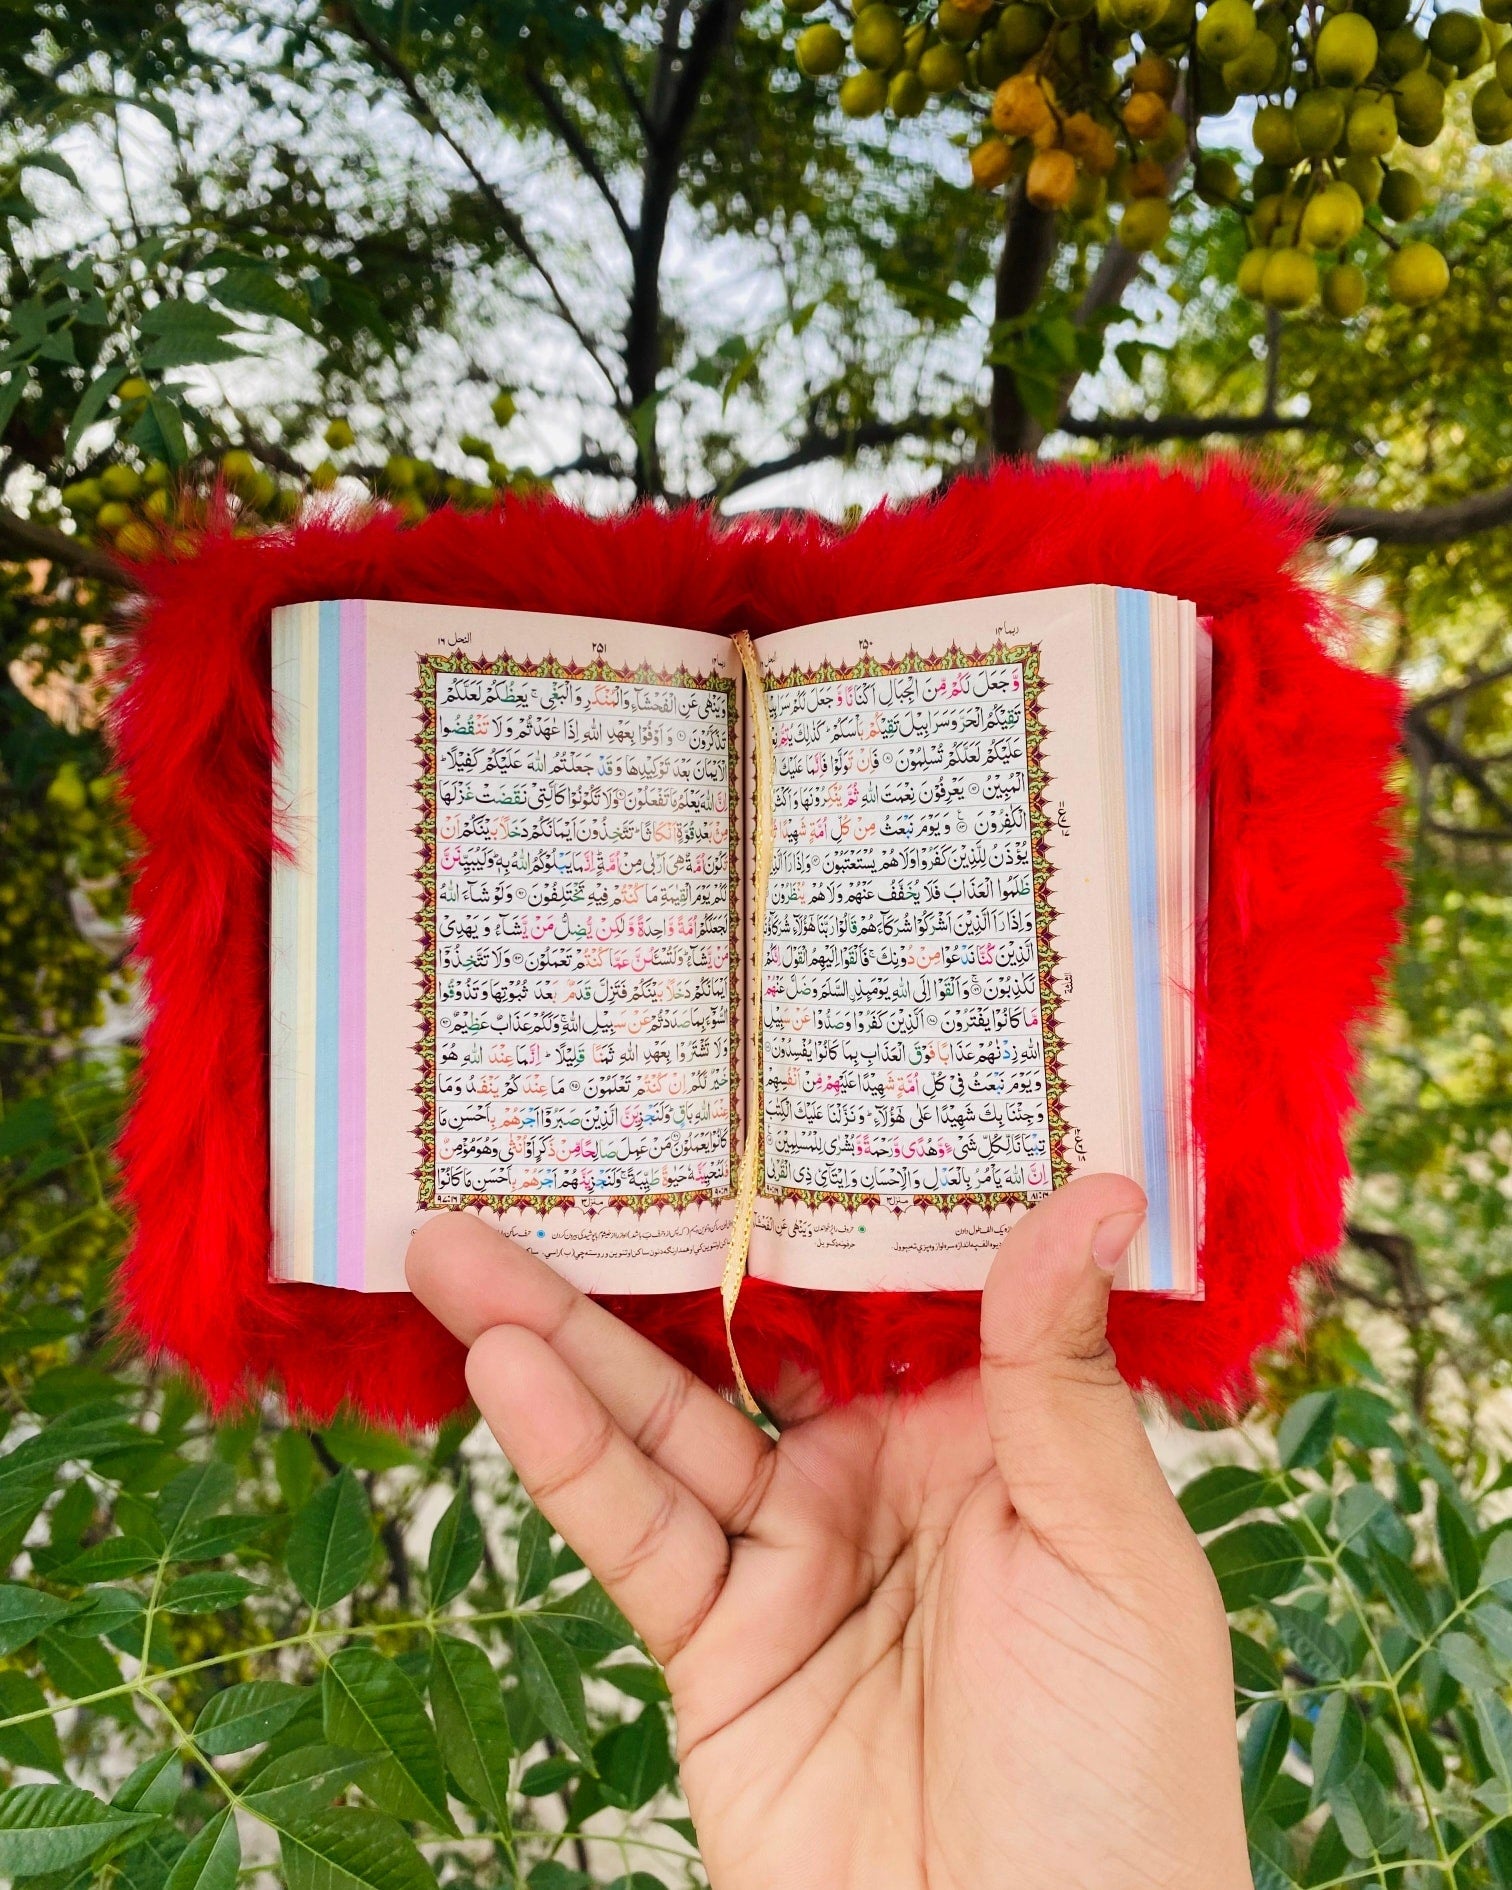 ربما ١٤
٢٥٠
وَّ جَعَلَ لَكُمْ مِّنَ الْجِبَالِ اَكْنَانًا وَّ جَعَلَ لَكُمْ سَرَابِيْلَ
تَقِيْكُمُ الْحَرَّ وَ سَرَابِيْلَ تَقِيْكُمْ بَاْسَكُمْ ؕ كَذٰلِكَ يُتِمُّ
عَلَيْكُمْ لَعَلَّكُمْ تُسْلِمُوْنَ ۝ فَاِنْ تَوَلَّوْا فَاِنَّمَا عَلَيْكَ
الْمُبِيْنُ ۝ يَعْرِفُوْنَ نِعْمَتَ اللّٰهِ ثُمَّ يُنْكِرُوْنَهَا وَ اَكْثَرُ
الْكٰفِرُوْنَ ۝ وَ يَوْمَ نَبْعَثُ مِنْ كُلِّ اُمَّةٍ شَهِيْدًا
يُؤْذَنُ لِلَّذِيْنَ كَفَرُوْا وَلَا هُمْ يُسْتَعْتَبُوْنَ ۝ وَ اِذَا رَاَ الَّذِيْنَ
ظَلَمُوا الْعَذَابَ فَلَا يُخَفَّفُ عَنْهُمْ وَلَا هُمْ يُنْظَرُوْنَ
وَ اِذَا رَاَ الَّذِيْنَ اَشْرَكُوْا شُرَكَآءَهُمْ قَالُوْا رَبَّنَا هٰۤؤُلَآءِ شُرَكَآؤُنَا
الَّذِيْنَ كُنَّا نَدْعُوْا مِنْ دُوْنِكَ ۚ فَاَلْقَوْا اِلَيْهِمُ الْقَوْلَ اِنَّكُمْ
لَكٰذِبُوْنَ ۝ وَ اَلْقَوْا اِلَى اللّٰهِ يَوْمَىِٕذِ ِ۟السَّلَمَ وَ ضَلَّ عَنْهُمْ
مَّا كَانُوْا يَفْتَرُوْنَ ۝ اَلَّذِيْنَ كَفَرُوْا وَ صَدُّوْا عَنْ سَبِيْلِ
اللّٰهِ زِدْنٰهُمْ عَذَابًا فَوْقَ الْعَذَابِ بِمَا كَانُوْا يُفْسِدُوْنَ
وَ يَوْمَ نَبْعَثُ فِيْ كُلِّ اُمَّةٍ شَهِيْدًا عَلَيْهِمْ مِّنْ اَنْفُسِهِمْ
وَ جِئْنَا بِكَ شَهِيْدًا عَلٰى هٰۤؤُلَآءِ ؕ وَ نَزَّلْنَا عَلَيْكَ الْكِتٰبَ
تِبْيَانًا لِّكُلِّ شَيْءٍ وَّ هُدًى وَّ رَحْمَةً وَّ بُشْرٰى لِلْمُسْلِمِيْنَ ۝
اِنَّ اللّٰهَ يَاْمُرُ بِالْعَدْلِ وَ الْاِحْسَانِ وَ اِيْتَآئِ ذِي الْقُرْبٰى
منزل ٣
وَ يَنْهٰى عَنِ الْفَحْشَآ
النحل ١٦
٢٥١
وَ يَنْهٰى عَنِ الْفَحْشَآءِ وَ الْمُنْكَرِ وَ الْبَغْيِ ۚ يَعِظُكُمْ لَعَلَّكُمْ
تَذَكَّرُوْنَ ۝ وَ اَوْفُوْا بِعَهْدِ اللّٰهِ اِذَا عٰهَدْتُّمْ وَ لَا تَنْقُضُوا
الْاَيْمَانَ بَعْدَ تَوْكِيْدِهَا وَ قَدْ جَعَلْتُمُ اللّٰهَ عَلَيْكُمْ كَفِيْلًا ؕ
اِنَّ اللّٰهَ يَعْلَمُ مَا تَفْعَلُوْنَ ۝ وَ لَا تَكُوْنُوْا كَالَّتِيْ نَقَضَتْ غَزْلَهَا
مِنْۢ بَعْدِ قُوَّةٍ اَنْكَاثًا ؕ تَتَّخِذُوْنَ اَيْمَانَكُمْ دَخَلًۢا بَيْنَكُمْ اَنْ
تَكُوْنَ اُمَّةٌ هِيَ اَرْبٰى مِنْ اُمَّةٍ ؕ اِنَّمَا يَبْلُوْكُمُ اللّٰهُ بِهٖ ؕ وَ لَيُبَيِّنَنَّ
لَكُمْ يَوْمَ الْقِيٰمَةِ مَا كُنْتُمْ فِيْهِ تَخْتَلِفُوْنَ ۝ وَ لَوْ شَآءَ اللّٰهُ
لَجَعَلَكُمْ اُمَّةً وَّاحِدَةً وَّ لٰكِنْ يُّضِلُّ مَنْ يَّشَآءُ وَ يَهْدِيْ
مَنْ يَّشَآءُ ؕ وَ لَتُسْـَٔلُنَّ عَمَّا كُنْتُمْ تَعْمَلُوْنَ ۝ وَ لَا تَتَّخِذُوْۤا
اَيْمَانَكُمْ دَخَلًۢا بَيْنَكُمْ فَتَزِلَّ قَدَمٌۢ بَعْدَ ثُبُوْتِهَا وَ تَذُوْقُوا
السُّوْٓءَ بِمَا صَدَدْتُّمْ عَنْ سَبِيْلِ اللّٰهِ ۚ وَ لَكُمْ عَذَابٌ عَظِيْمٌ ۝
وَ لَا تَشْتَرُوْا بِعَهْدِ اللّٰهِ ثَمَنًا قَلِيْلًا ؕ اِنَّمَا عِنْدَ اللّٰهِ هُوَ
خَيْرٌ لَّكُمْ اِنْ كُنْتُمْ تَعْلَمُوْنَ ۝ مَا عِنْدَكُمْ يَنْفَدُ وَ مَا
عِنْدَ اللّٰهِ بَاقٍ ؕ وَ لَنَجْزِيَنَّ الَّذِيْنَ صَبَرُوْۤا اَجْرَهُمْ بِاَحْسَنِ مَا
كَانُوْا يَعْمَلُوْنَ ۝ مَنْ عَمِلَ صَالِحًا مِّنْ ذَكَرٍ اَوْ اُنْثٰى وَ هُوَ مُؤْمِنٌ
فَلَنُحْيِيَنَّهٗ حَيٰوةً طَيِّبَةً ۚ وَ لَنَجْزِيَنَّهُمْ اَجْرَهُمْ بِاَحْسَنِ مَا كَانُوْا
منزل ٣